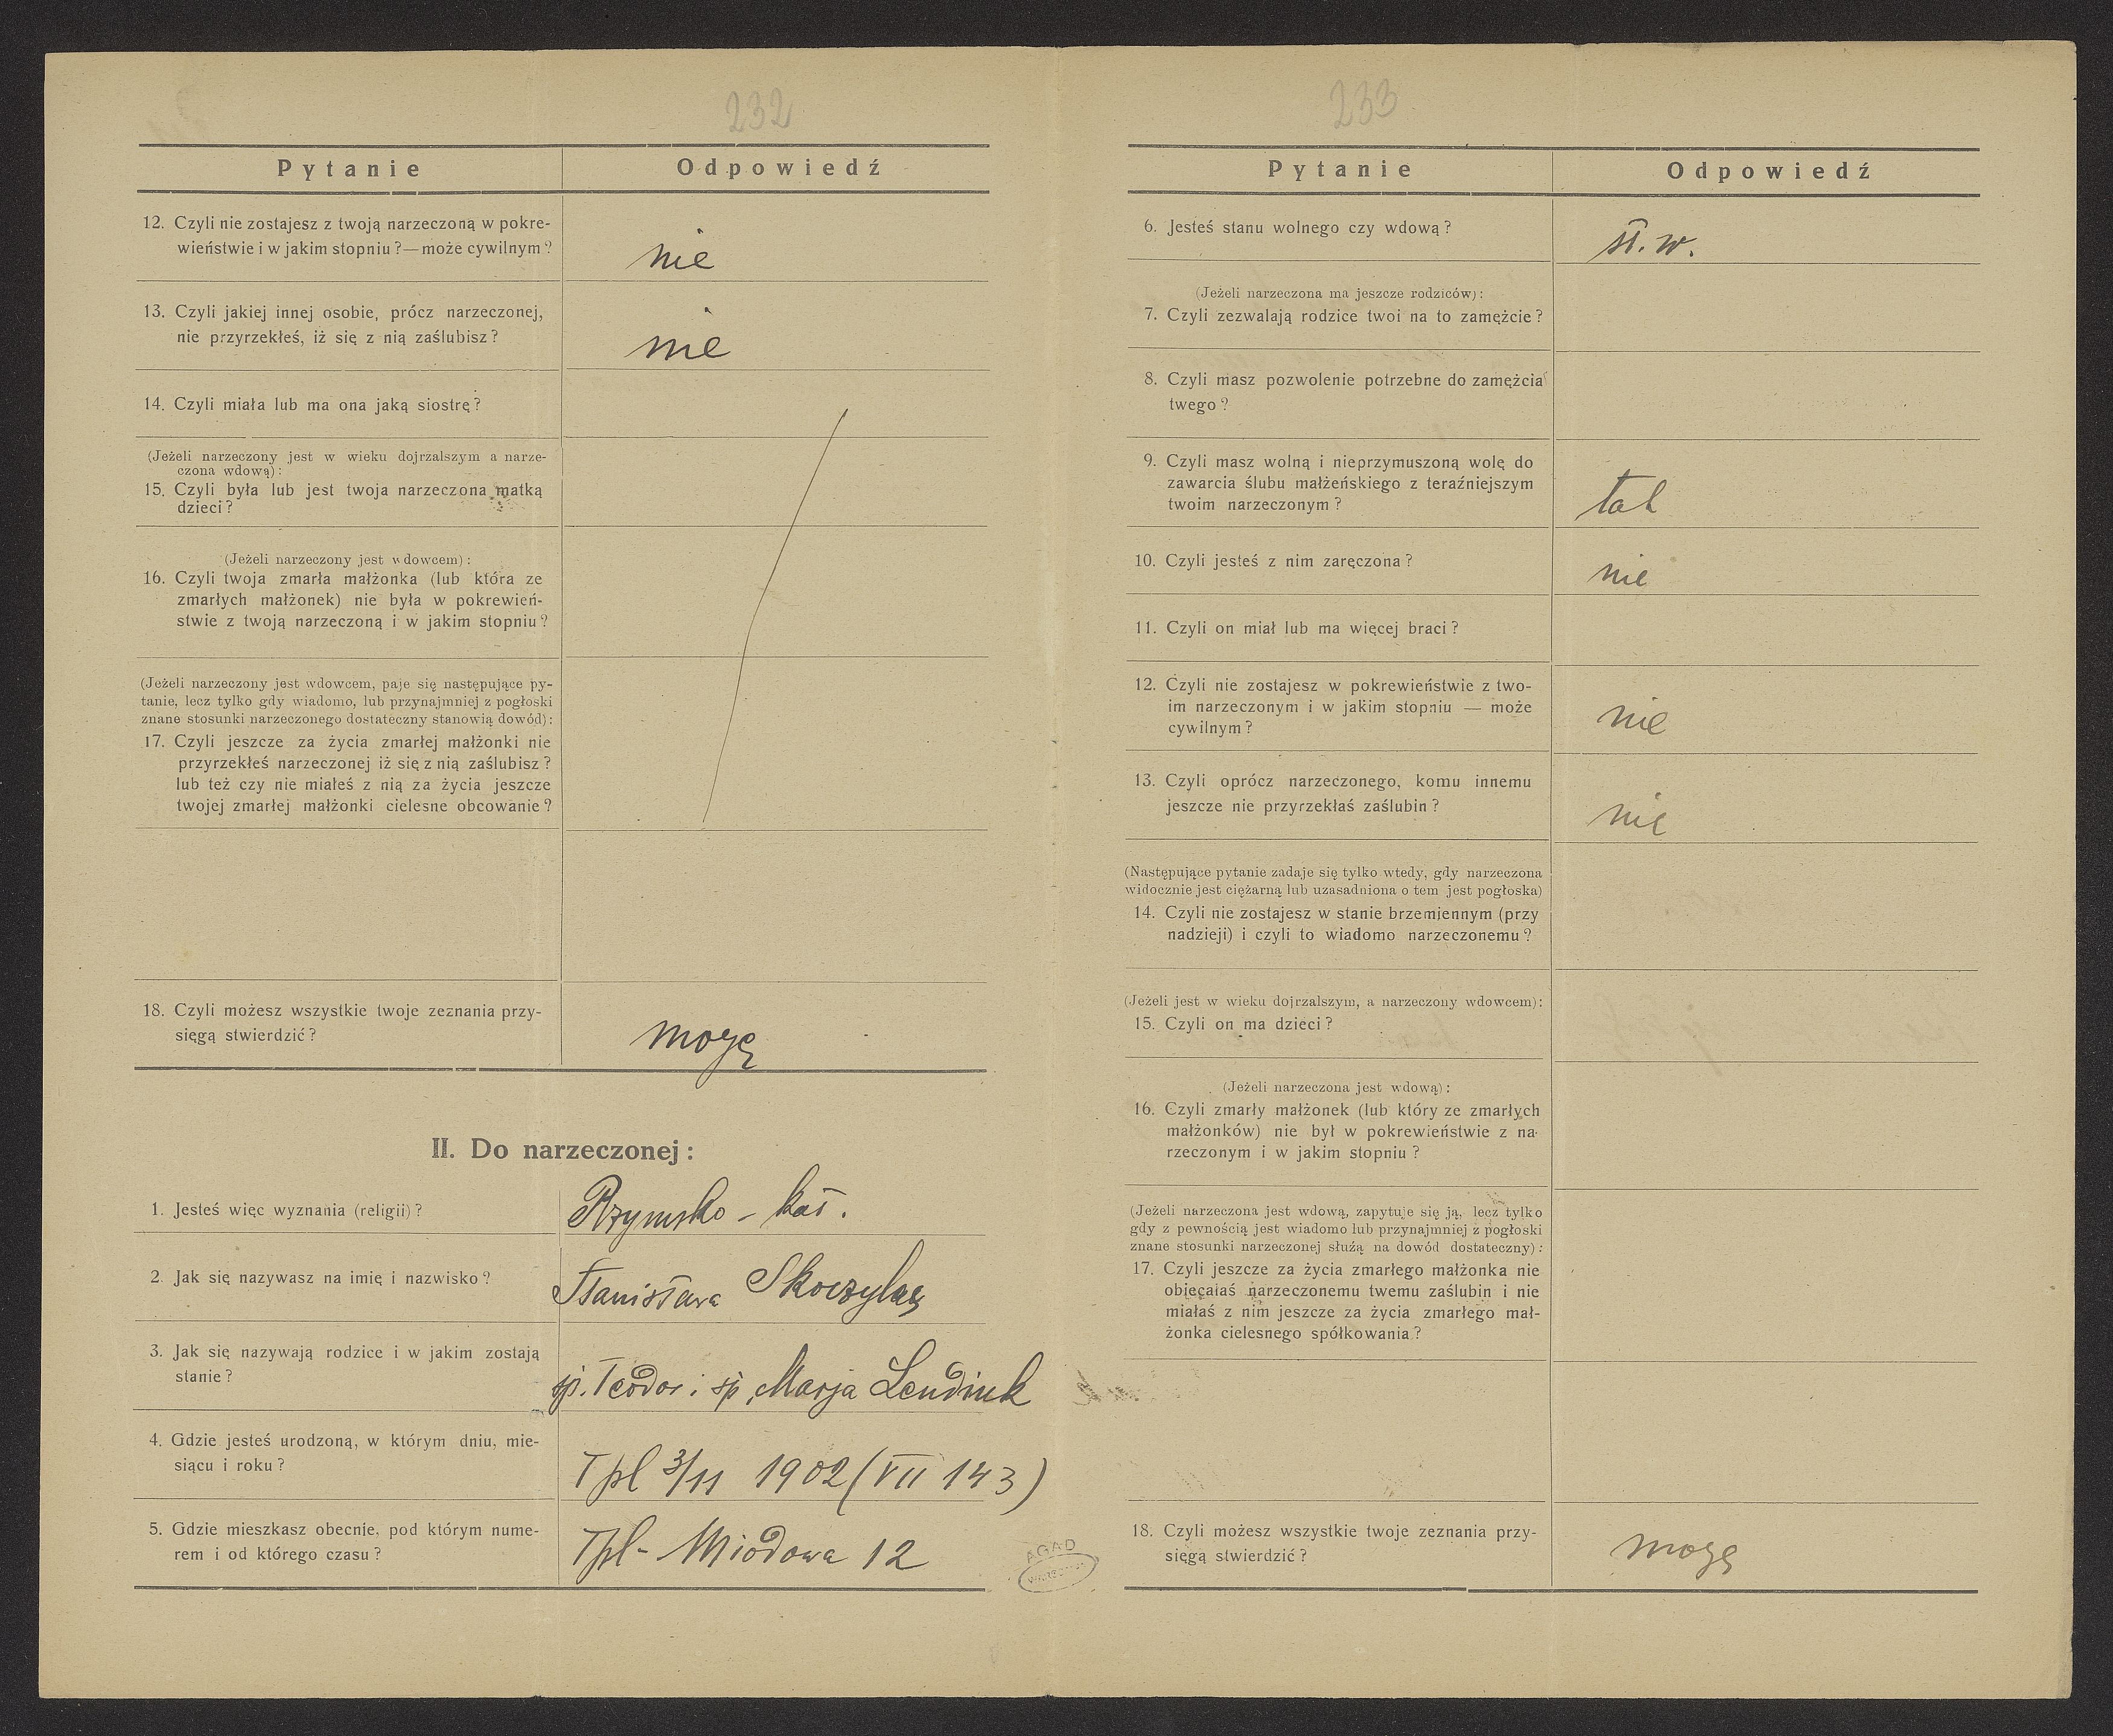 232
Pytanie
Odpowiedź
12. Czyli nie zostajesz z twoją narzeczoną w pokre-
wieństwie i w jakim stopniu?—może cywilnym?
nie
13. Czyli jakiej innej osobie, prócz narzeczonej,
nie przyrzekłeś, iż się z nią zaślubisz?
nie
14. Czyli miała lub ma ona jaką siostrę?
(Jeżeli narzeczony jest w wieku dojrzalszym a narze-
czona wdową):
15. Czyli była lub jest twoja narzeczona matką
dzieci?
(Jeżeli narzeczony jest wdowcem):
16. Czyli twoja zmarła małżonka (lub która ze
zmarłych małżonek) nie była w pokrewień-
stwie z twoją narzeczoną i w jakim stopniu?
(Jeżeli narzeczony jest wdowcem, paje się następujące py-
tanie, lecz tylko gdy wiadomo, lub przynajmniej z pogłoski
znane stosunki narzeczonego dostateczny stanowią dowód):
17. Czyli jeszcze za życia zmarłej małżonki nie
przyrzekłeś narzeczonej iż się z nią zaślubisz?
lub też czy nie miałeś z nią za życia jeszcze
twojej zmarłej małżonki cielesne obcowanie?
18. Czyli możesz wszystkie twoje zeznania przy-
sięgą stwierdzić?
mogę
II. Do narzeczonej:
1. Jesteś więc wyznania (religii)?
Rzymsko - kat.
2. Jak się nazywasz na imię i nazwisko?
Stanisława Skoczylas
3. Jak się nazywają rodzice i w jakim zostają
stanie?
śp. Teodor i śp. Marja Lendiuk
4. Gdzie jesteś urodzoną, w którym dniu, mie-
siącu i roku?
Tpl 3/11 1902 (VII 143)
5. Gdzie mieszkasz obecnie, pod którym nume-
rem i od którego czasu?
Tpl - Miodowa 12
AGAD
233
Pytanie
Odpowiedź
6. Jesteś stanu wolnego czy wdową?
st. w.
(Jeżeli narzeczona ma jeszcze rodziców):
7. Czyli zezwalają rodzice twoi na to zamęźcie?
8. Czyli masz pozwolenie potrzebne do zamężcia
twego?
9. Czyli masz wolną i nieprzymuszoną wolę do
zawarcia ślubu małżeńskiego z teraźniejszym
twoim narzeczonym?
tak
10. Czyli jesteś z nim zaręczona?
nie
11. Czyli on miał lub ma więcej braci?
12. Czyli nie zostajesz w pokrewieństwie z two-
im narzeczonym i w jakim stopniu — może
cywilnym?
nie
13. Czyli oprócz narzeczonego, komu innemu
jeszcze nie przyrzekłaś zaślubin?
nie
(Następujące pytanie zadaje się tylko wtedy, gdy narzeczona
widocznie jest ciężarną lub uzasadniona o tem jest pogłoska)
14. Czyli nie zostajesz w stanie brzemiennym (przy
nadzieji) i czyli to wiadomo narzeczonemu?
(Jeżeli jest w wieku dojrzalszym, a narzeczony wdowcem):
15. Czyli on ma dzieci?
(Jeżeli narzeczona jest wdową):
16. Czyli zmarły małżonek (lub który ze zmarłych
małżonków) nie był w pokrewieństwie z na-
rzeczonym i w jakim stopniu?
(Jeżeli narzeczona jest wdową, zapytuje się ją, lecz tylko
gdy z pewnością jest wiadomo lub przynajmniej z pogłoski
znane stosunki narzeczonej służą na dowód dostateczny):
17. Czyli jeszcze za życia zmarłego małżonka nie
obiecałaś narzeczonemu twemu zaślubin i nie
miałaś z nim jeszcze za życia zmarłego mał-
żonka cielesnego spółkowania?
18. Czyli możesz wszystkie twoje zeznania przy-
sięgą stwierdzić?
mogę